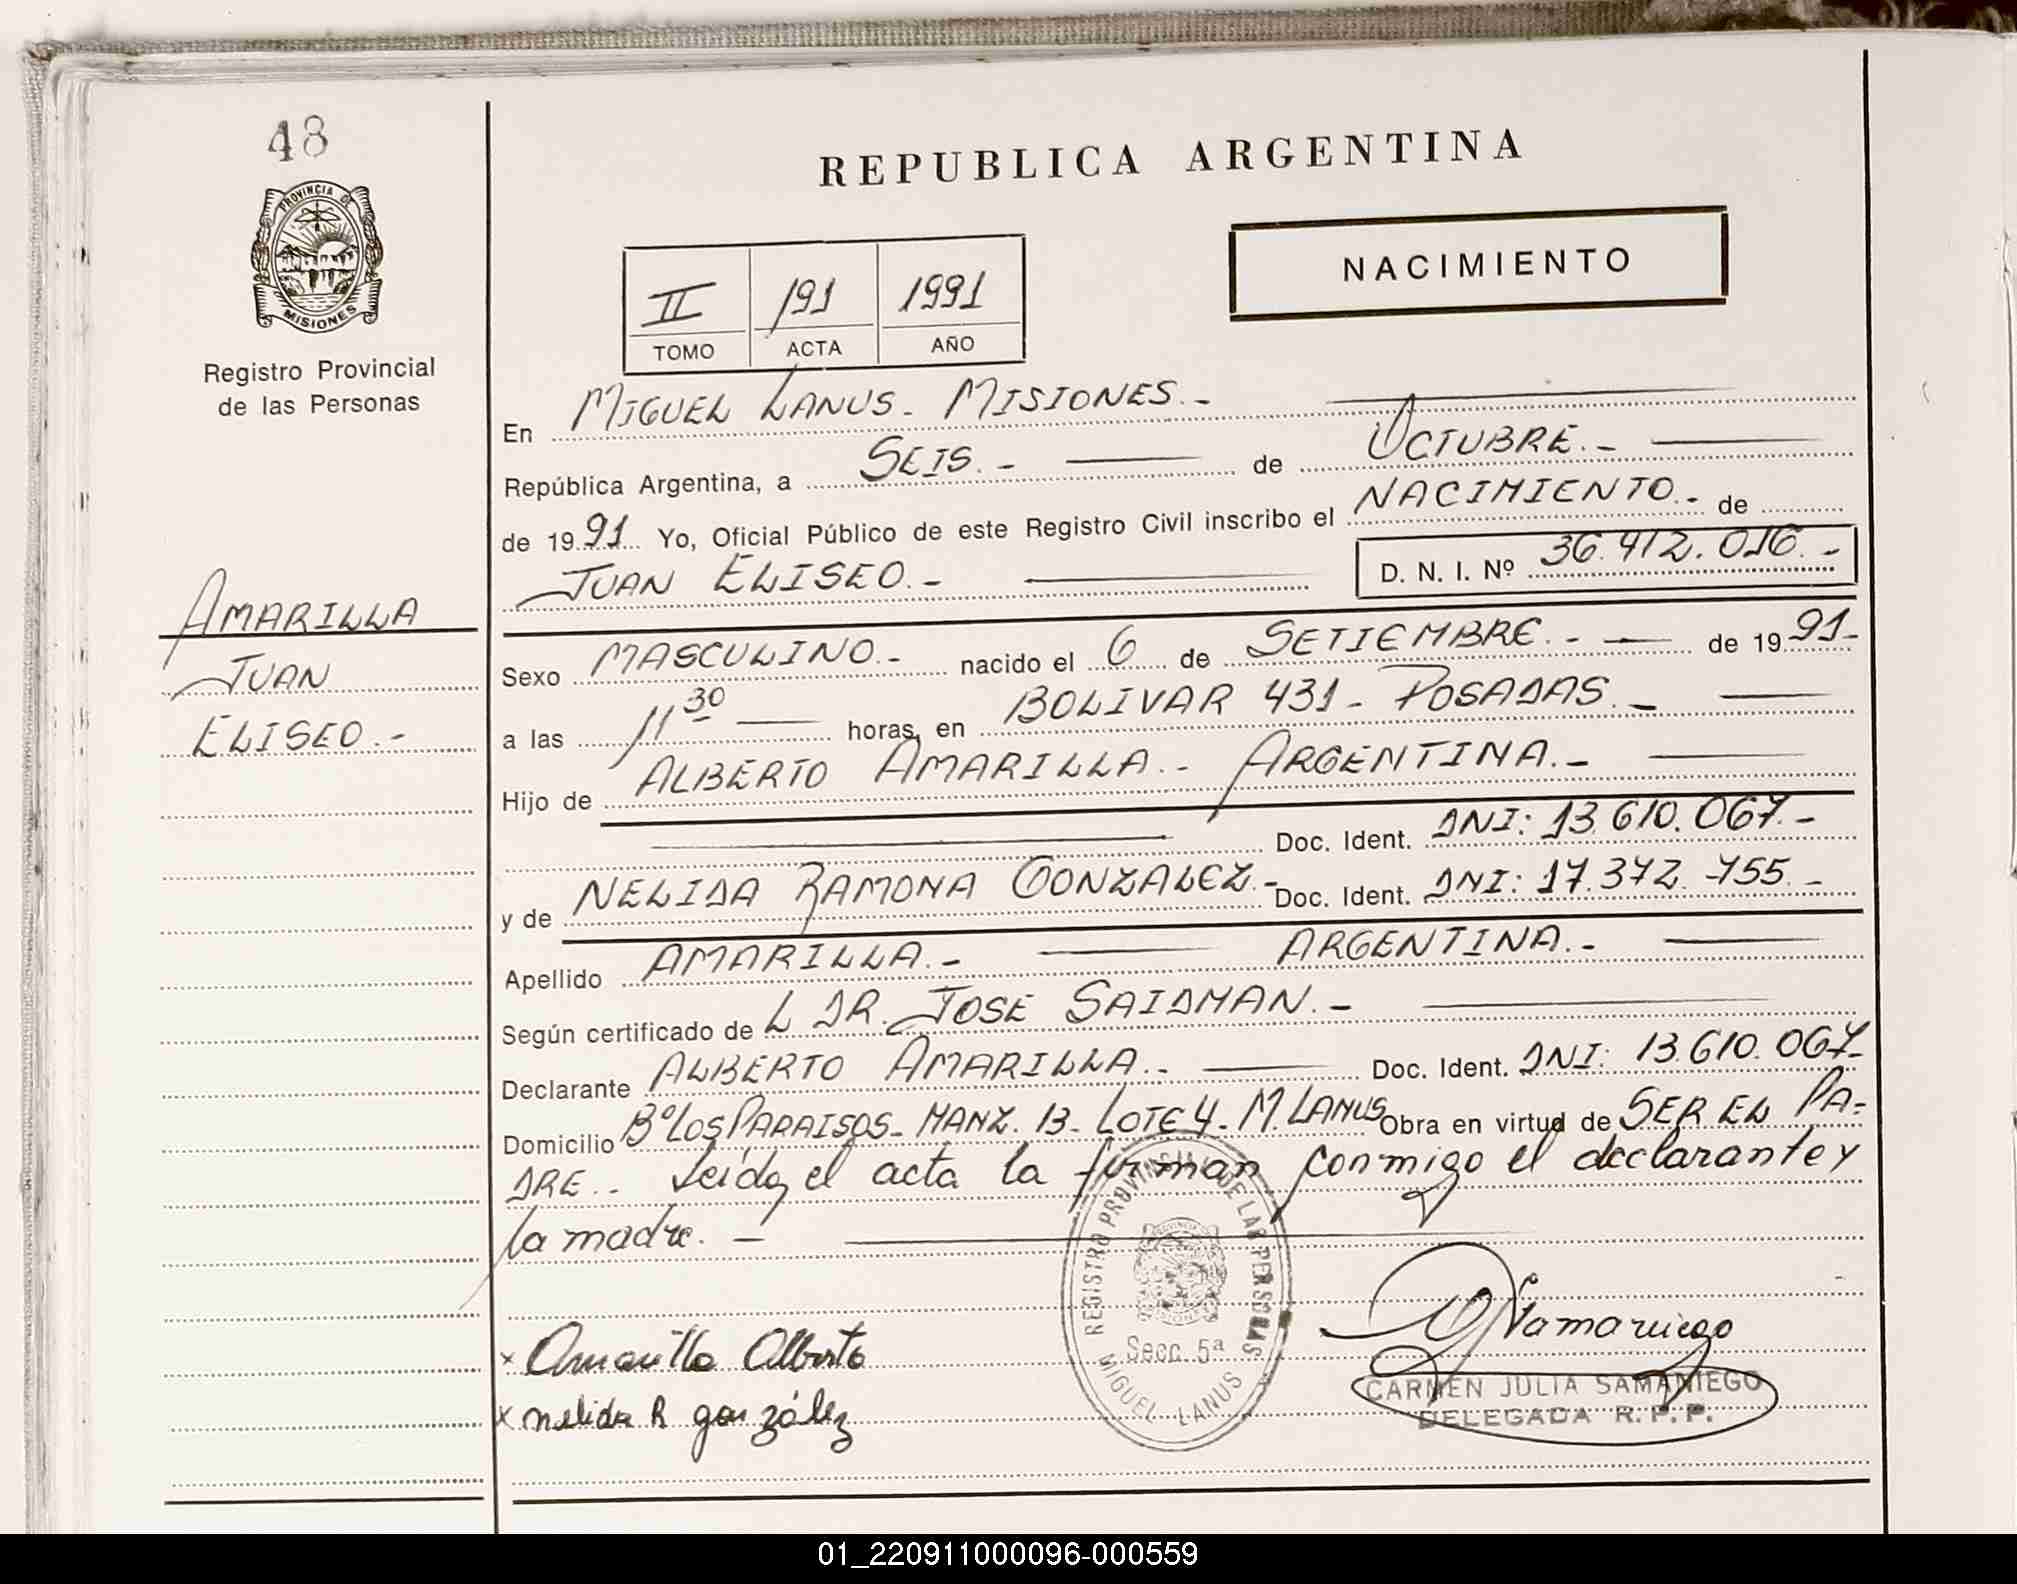 48
PROVINCIA DE
MISIONES
Registro Provincial
de las Personas
AMARILLA
JUAN
ELISEO.-
REPUBLICA ARGENTINA
NACIMIENTO
II 191 1991
TOMO ACTA AÑO
En MIGUEL LANUS - MISIONES.-
República Argentina, a SEIS.- de OCTUBRE.-
de 1991 Yo, Oficial Público de este Registro Civil inscribo el NACIMIENTO.- de
JUAN ELISEO.- D. N. I. Nº 36.412.016.-
Sexo MASCULINO.- nacido el 6 de SETIEMBRE.- de 1991.-
a las 11 30 horas, en BOLIVAR 431 - POSADAS.-
Hijo de ALBERTO AMARILLA.- ARGENTINA.-
Doc. Ident. DNI: 13.610.067.-
y de NELIDA RAMONA GONZALEZ.- Doc. Ident. DNI: 17.372.755.-
Apellido AMARILLA.- ARGENTINA.-
Según certificado de L DR. JOSE SAIDMAN.-
Declarante ALBERTO AMARILLA.- Doc. Ident. DNI: 13.610.067.-
Domicilio Bº LOS PARAISOS - MANZ. 13 - LOTE 4 - M. LANUS Obra en virtud de SER EL PA-
DRE.- Leida el acta la firman conmigo el declarante y
la madre. -
REGISTRO PROVINCIAL DE LAS PERSONAS
Secc. 5ª
MIGUEL LANUS
x Amarilla Alberto
x nelida R gonzález
Samaniego
CARMEN JULIA SAMANIEGO
DELEGADA R. P. P.
01_220911000096-000559